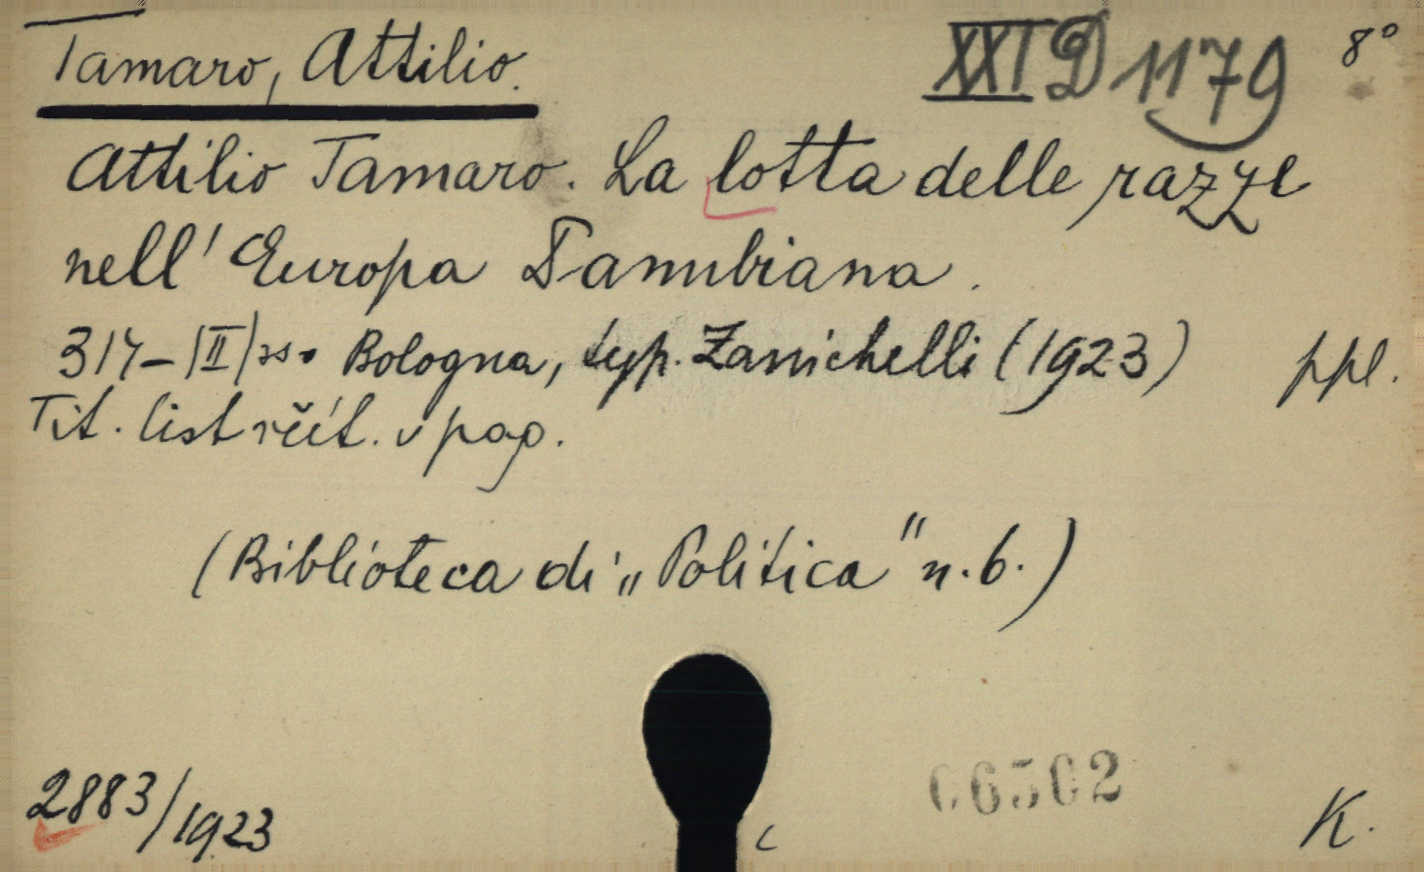 Tamaro, Attilio.
XXI D 1179
8°
Attilio Tamaro. La lotta delle razze
nell' Europa Danubiana.
317-|II| ss. Bologna, typ. Zanichelli (1923) ppl.
Tit. list včít. v pag.
(Biblioteca di „Politica" n. 6.)
2883/1923
06502
K.